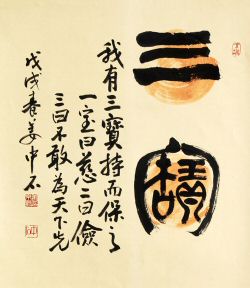 三寶
我有三寶持而保之
一宝曰慈二曰儉
三曰不敢為天下先
戊戌春姜石